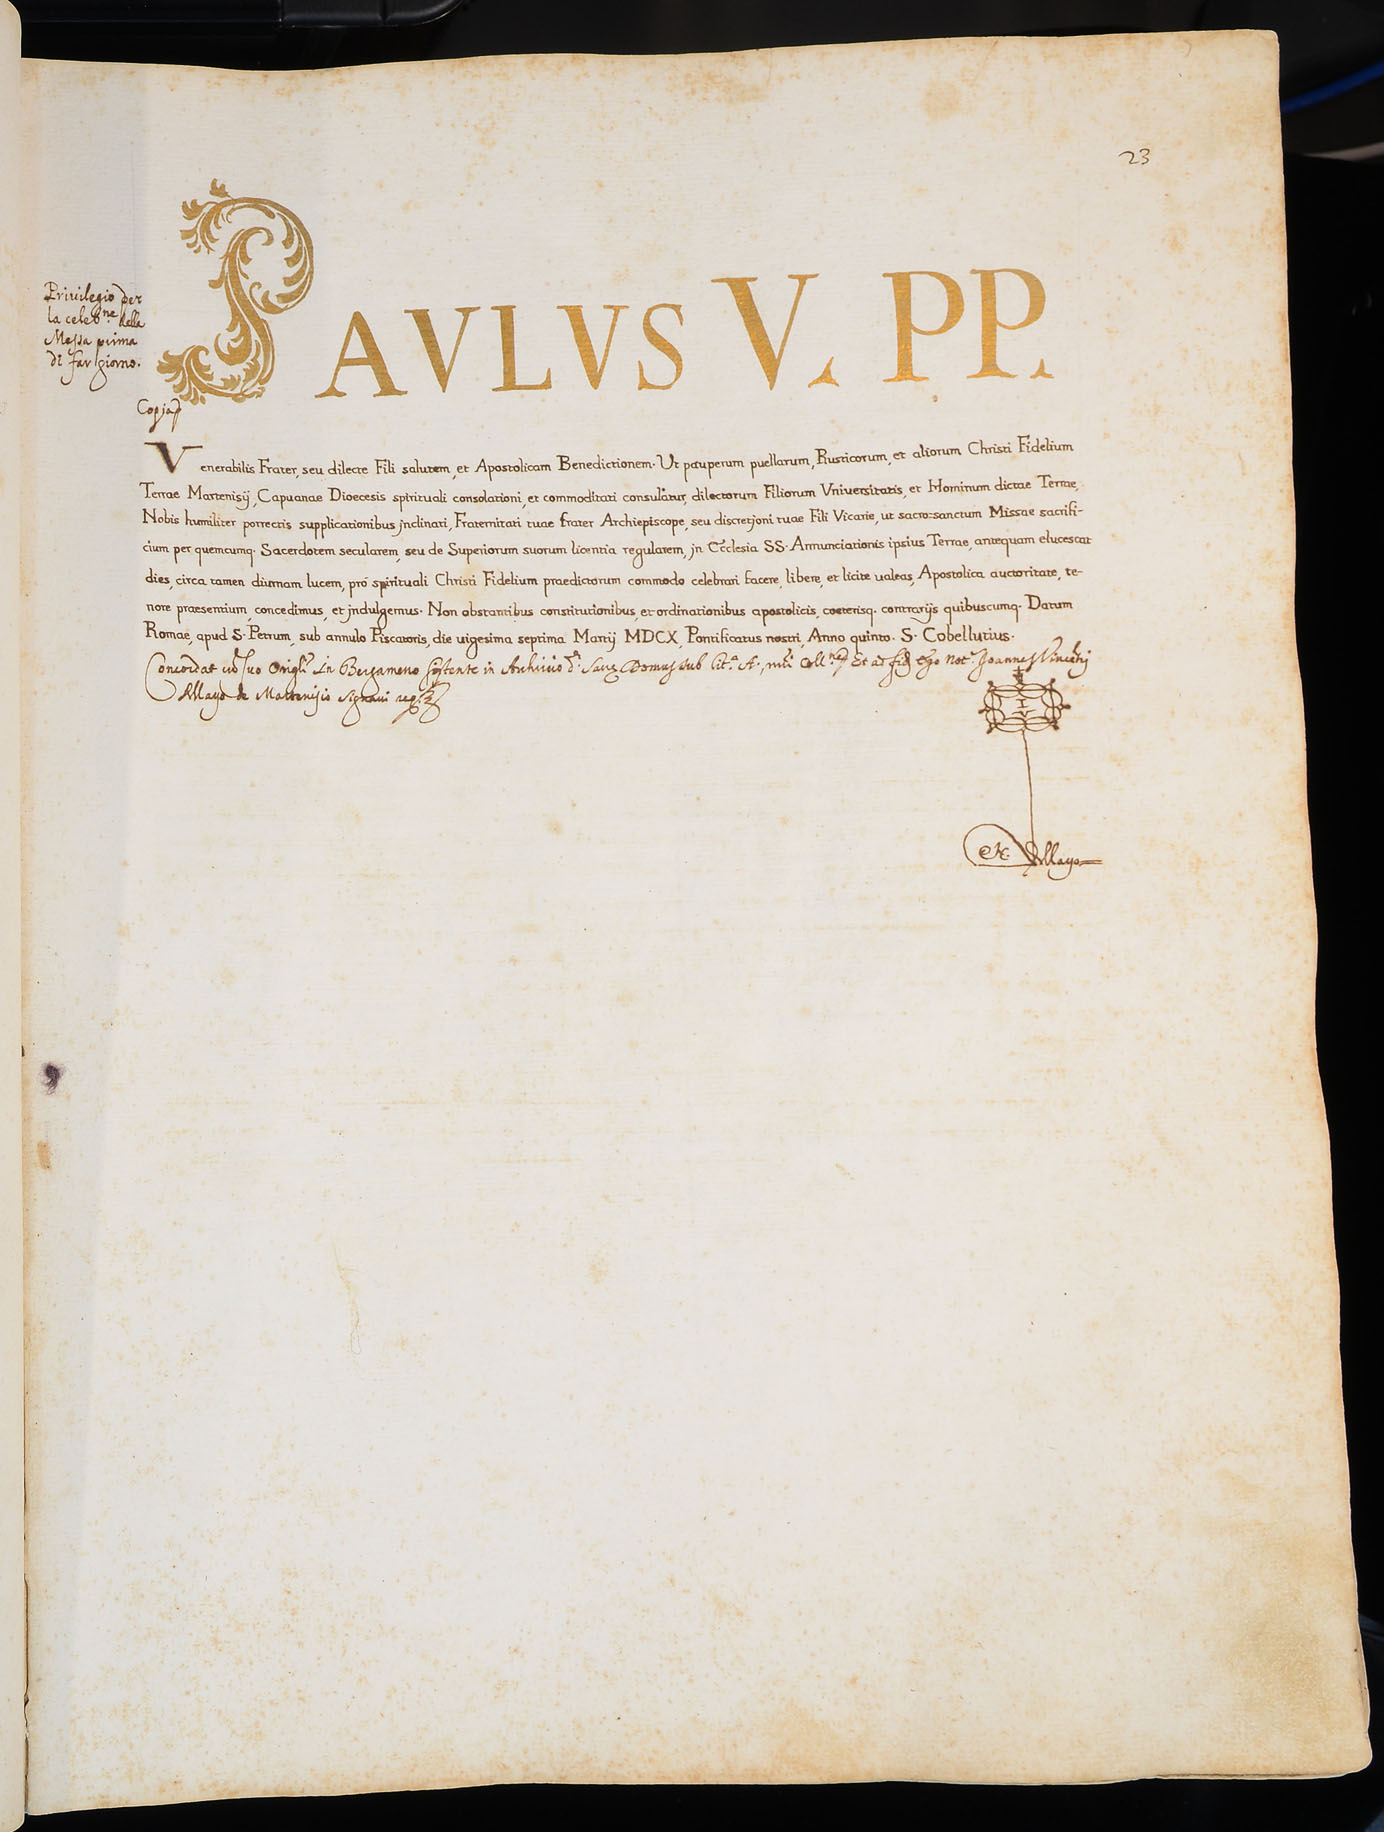 23
PAVLVS V. PP.
Priuilegio per
la celeb.ne della
Messa prima
di far giorno.
Copia
Venerabilis Frater, seu dilecte Fili salutem, et Apostolicam Benedictionem. Ut pauperum puellarum, Rusticorum, et aliorum Christi Fidelium
Terrae Martenisij, Capuanae Dioecesis spirituali consolationi, et commoditati consulatur, dilectorum Filiorum Vniuersitatis, et Hominum dictae Terrae,
Nobis humiliter porrectis supplicationibus jnclinati, Fraternitati tuae frater Archiepiscope, seu discretjoni tuae Fili Vicarie, ut sacro-sanctum Missae sacrifi-
cium per quemcumq. Sacerdotem secularem, seu de Superiorum suorum licentia regularem, jn Ecclesia SS. Annunciationis ipsius Terrae, antequam elucescat
dies, circa tamen diurnam lucem, pro spirituali Christi Fidelium praedictorum commodo celebrari facere, libere, et licite ualeas, Apostolica auctoritate, te-
nore praesentium, concedimus, et jndulgemus. Non obstantibus constitutionibus, et ordinationibus apostolicis, coeterisq. contrarijs quibuscumq. Datum
Romae, apud S. Petrum, sub annulo Piscatoris, die uigesima septima Martij MDCX, Pontificatus nostri, Anno quinto. S. Cobellutius.
Concordat suo Origli in Bergameno in Archiuio Domus sub lit.a A., Et ad fid. Ego Not. Joannes Vincentij
Allayo de Martenisio signaui
I V
Allayo